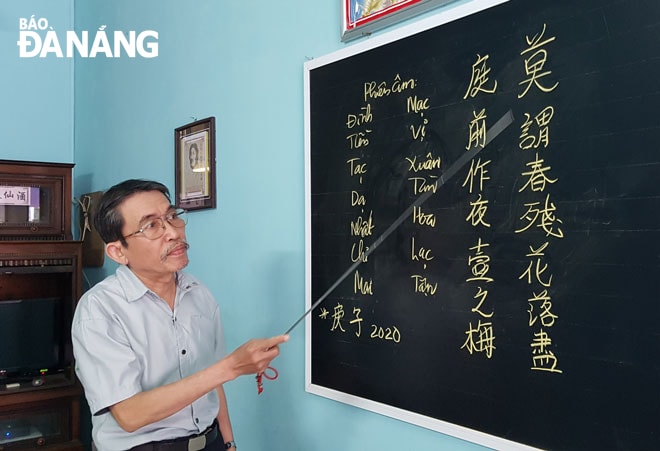 BÁO
ĐÀ NẴNG
莫謂春殘花落盡
庭前作夜壹之梅
Phiên âm:
Mạc Vị Xuân Tàn Hoa Lạc Tận
Đình Tiền Tạc Dạ Nhất Chi Mai
* 庚子 2020
仙酒